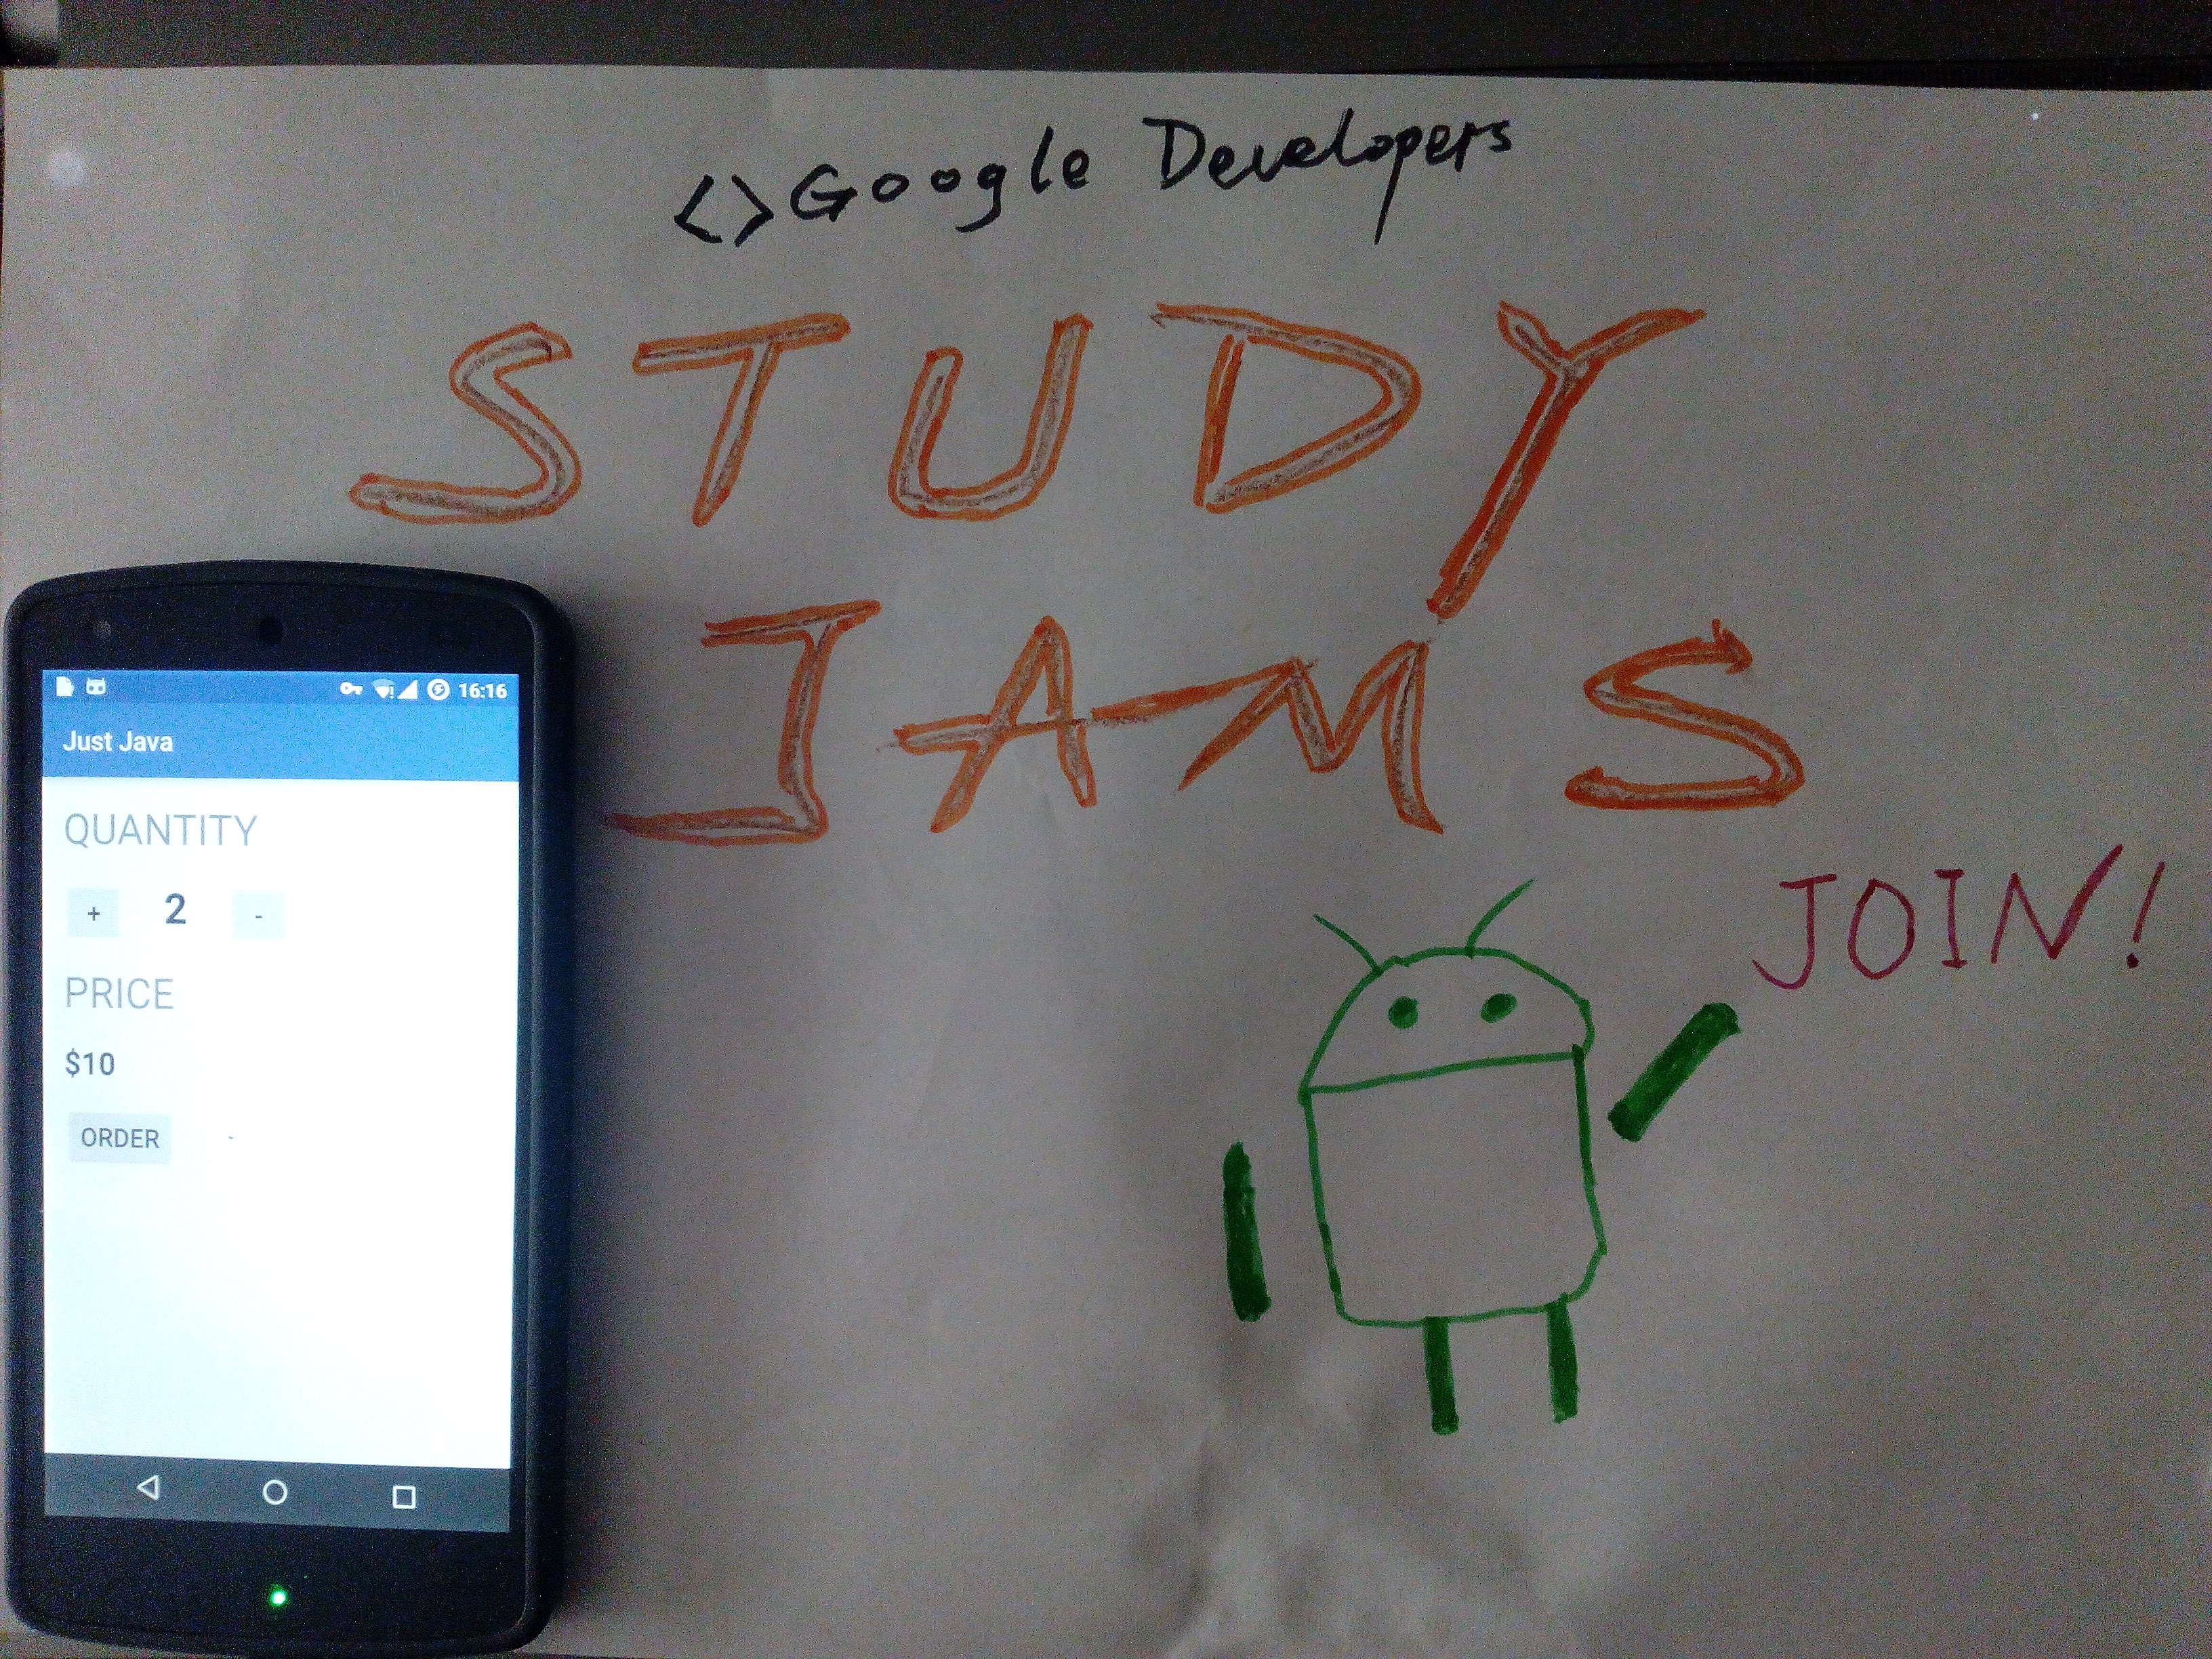 <>Google Developers
STUDY
JAMS
JOIN!
16:16
Just Java
QUANTITY
+ 2 -
PRICE
$10
ORDER